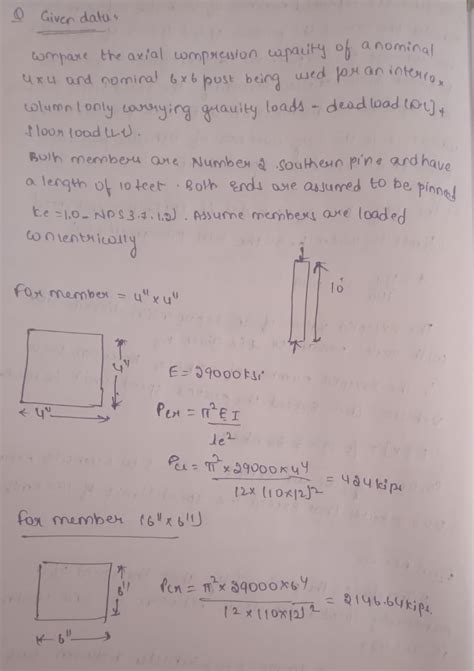 ① Given data:
compare the axial compression capacity of a nominal
4x4 and nominal 6x6 post being used for an interior
column (only carrying gravity loads - dead load (DL) +
floor load (LL).
Both members are Number 2 southern pine and have
a length of 10 feet. Both Ends are assumed to be pinned
Ke = 1.0 - NDS 3.7.1.2). Assume members are loaded
concentrically
For member = 4" x 4"
10'
4"
4"
E = 29000 ksi
Pcr = π² E I
le²
Pcr = π² x 29000 x 4⁴ = 424 kips
12 x (10x12)²
For member (6" x 6")
6"
6"
Pcr = π² x 29000 x 6⁴ = 2146.64 kips
12 x (10x12)²